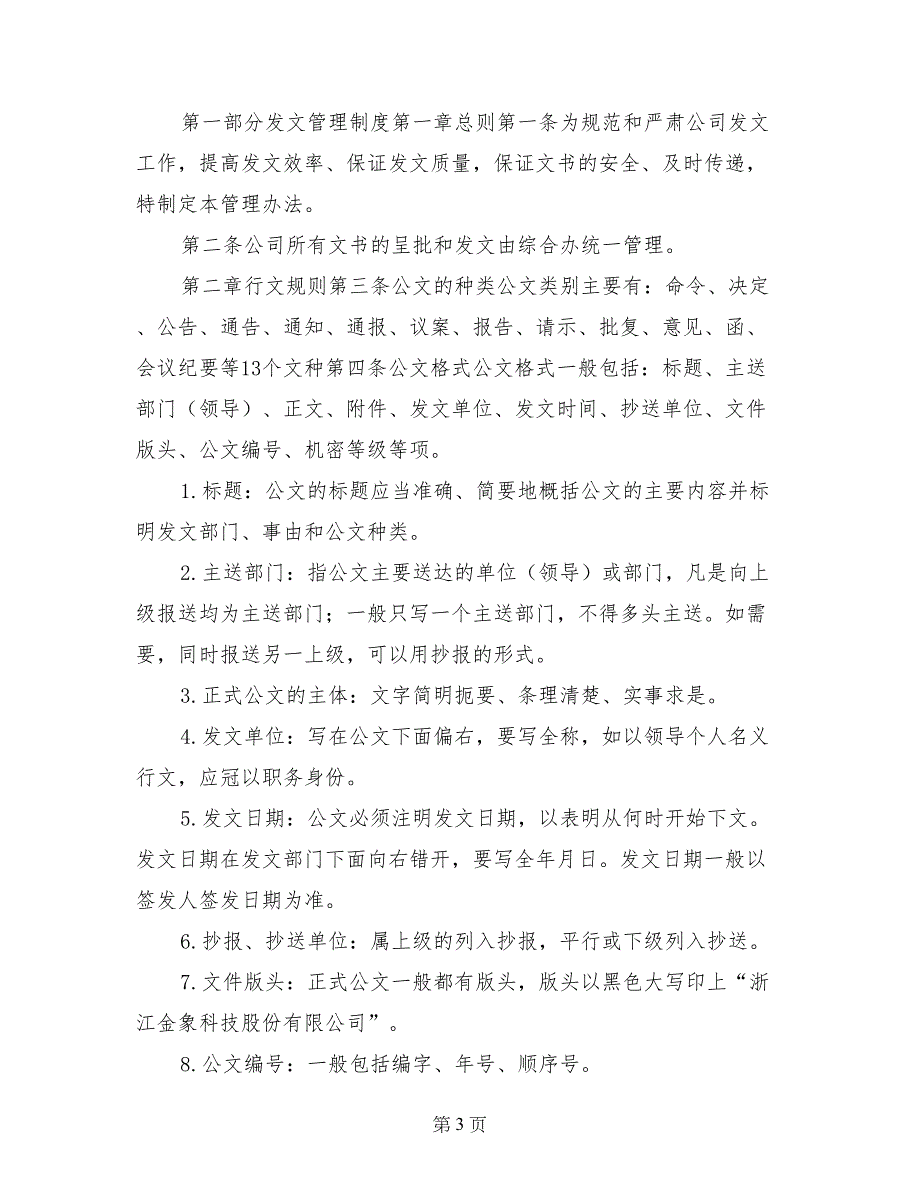 第一部分发文管理制度第一章总则第一条为规范和严肃公司发文
工作，提高发文效率、保证发文质量，保证文书的安全、及时传递，
特制定本管理办法。
第二条公司所有文书的呈批和发文由综合办统一管理。
第二章行文规则第三条公文的种类公文类别主要有：命令、决定
、公告、通告、通知、通报、议案、报告、请示、批复、意见、函、
会议纪要等13个文种第四条公文格式公文格式一般包括：标题、主送
部门（领导）、正文、附件、发文单位、发文时间、抄送单位、文件
版头、公文编号、机密等级等项。
1.标题：公文的标题应当准确、简要地概括公文的主要内容并标
明发文部门、事由和公文种类。
2.主送部门：指公文主要送达的单位（领导）或部门，凡是向上
级报送均为主送部门；一般只写一个主送部门，不得多头主送。如需
要，同时报送另一上级，可以用抄报的形式。
3.正式公文的主体：文字简明扼要、条理清楚、实事求是。
4.发文单位：写在公文下面偏右，要写全称，如以领导个人名义
行文，应冠以职务身份。
5.发文日期：公文必须注明发文日期，以表明从何时开始下文。
发文日期在发文部门下面向右错开，要写全年月日。发文日期一般以
签发人签发日期为准。
6.抄报、抄送单位：属上级的列入抄报，平行或下级列入抄送。
7.文件版头：正式公文一般都有版头，版头以黑色大写印上“浙
江金象科技股份有限公司”。
8.公文编号：一般包括编字、年号、顺序号。
第 3 页